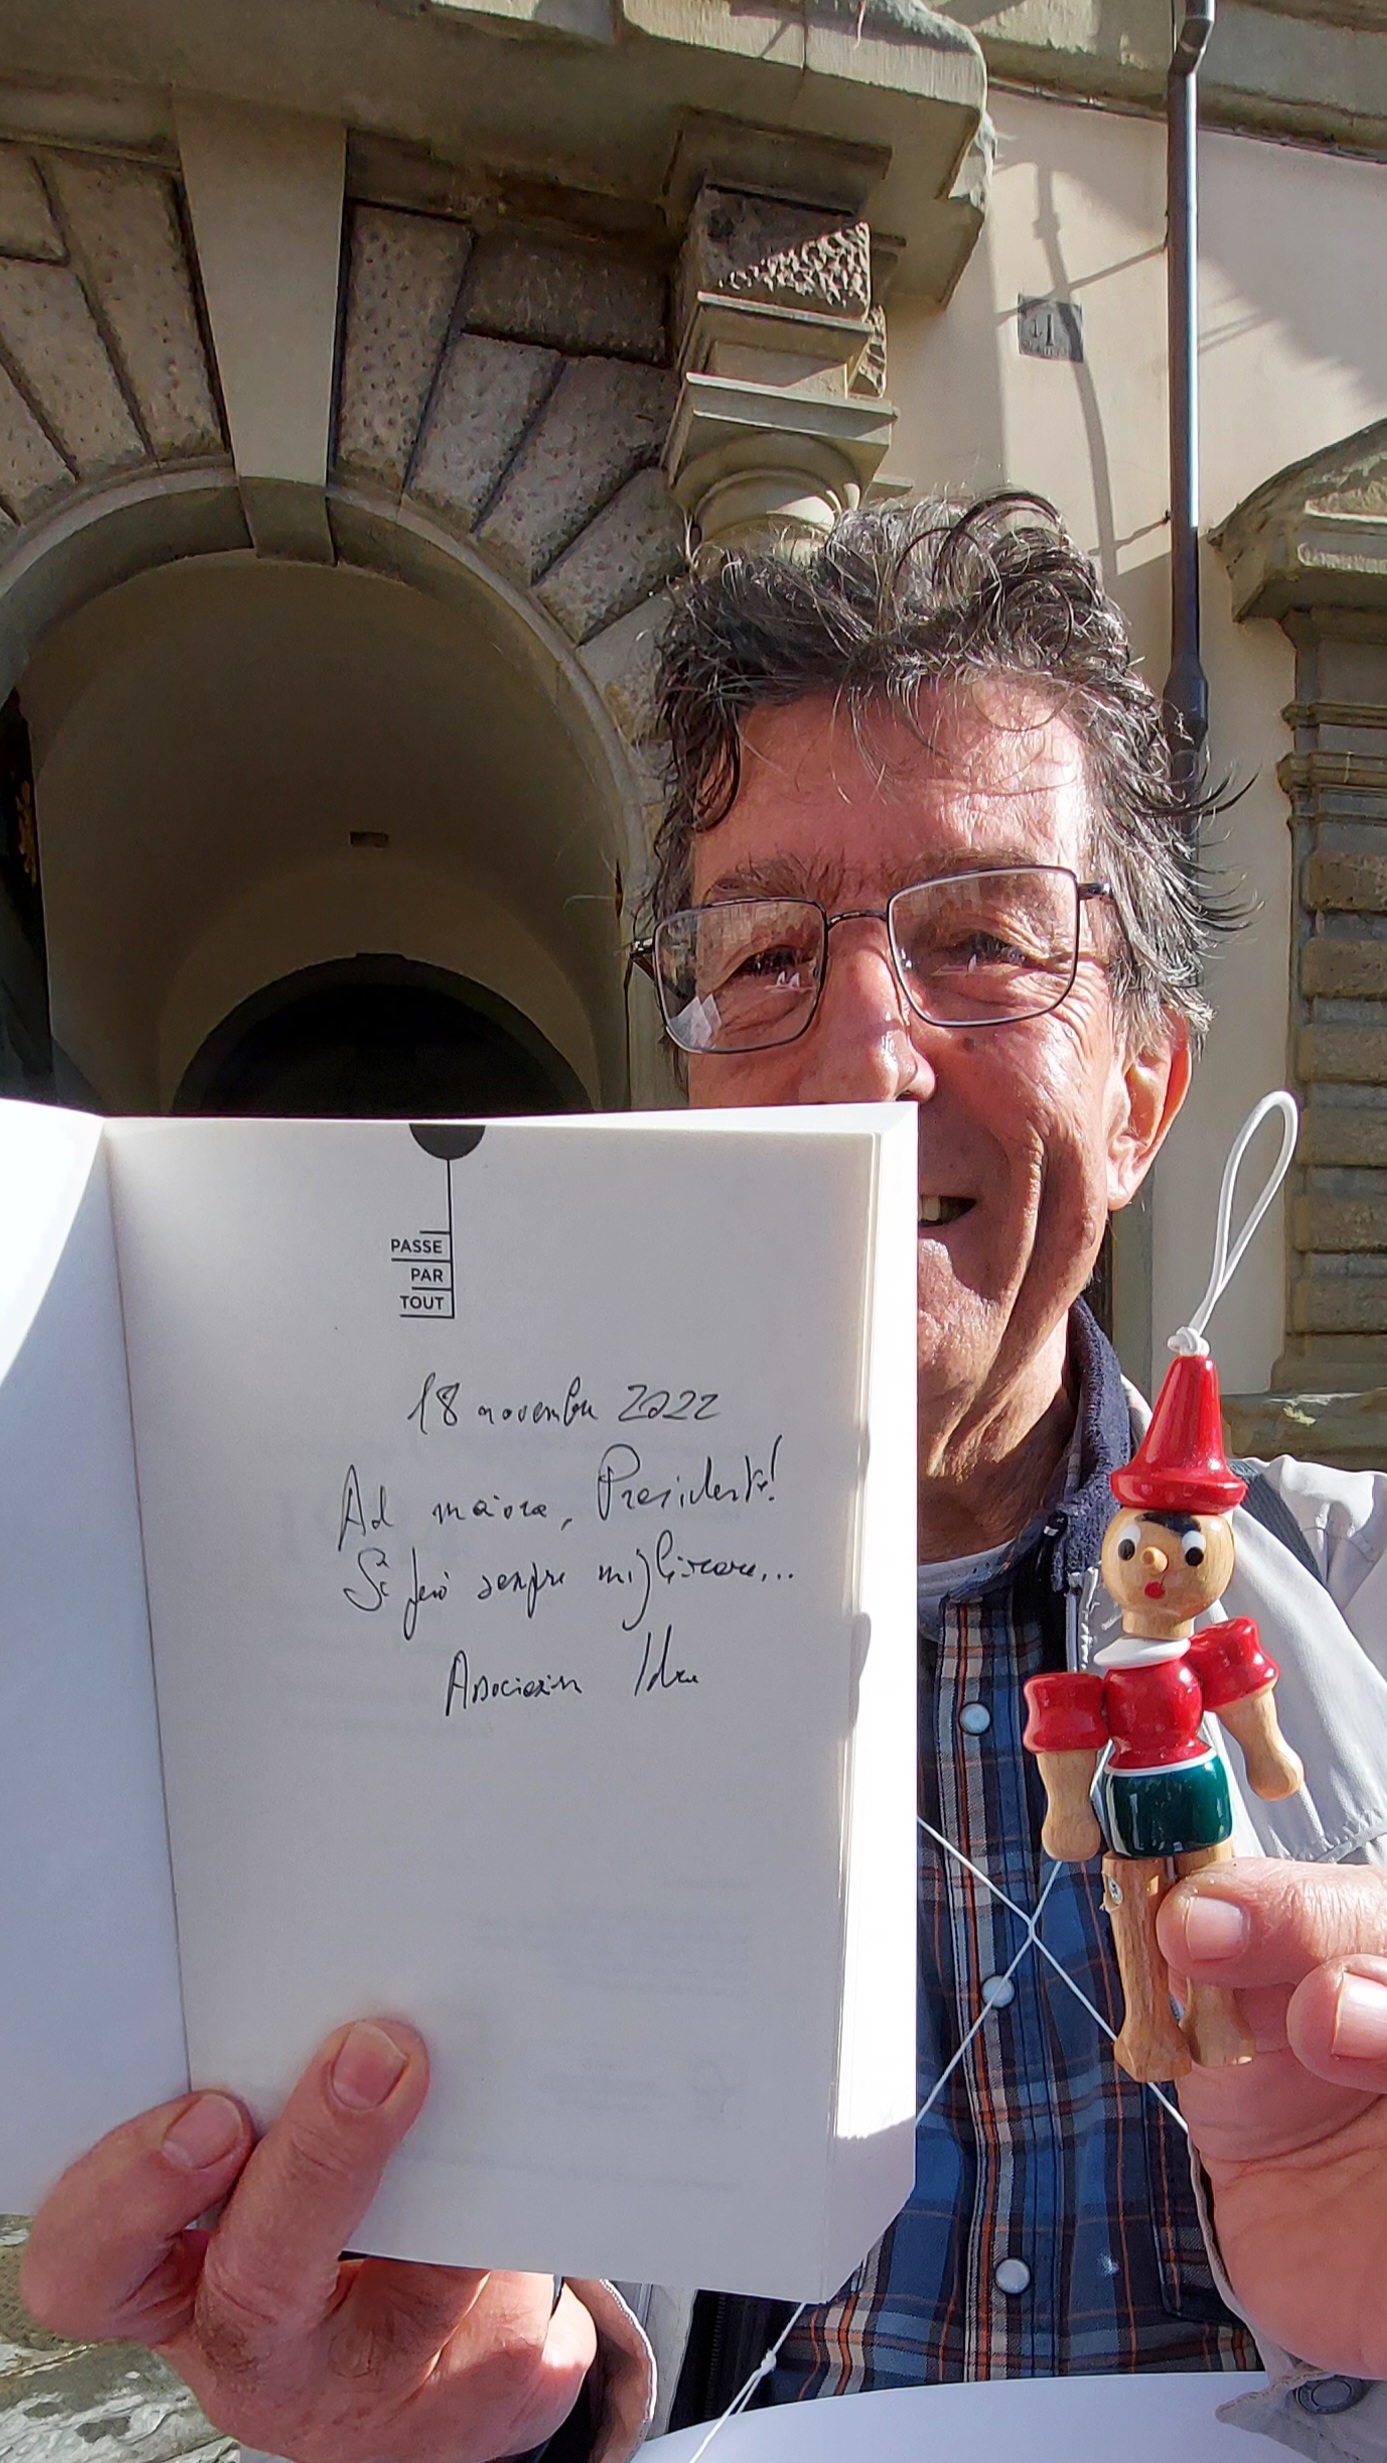 PASSE
PAR
TOUT
18 novembre 2022
Ad maiora, Presidente!
Si può sempre migliorare...
Associazione Idra